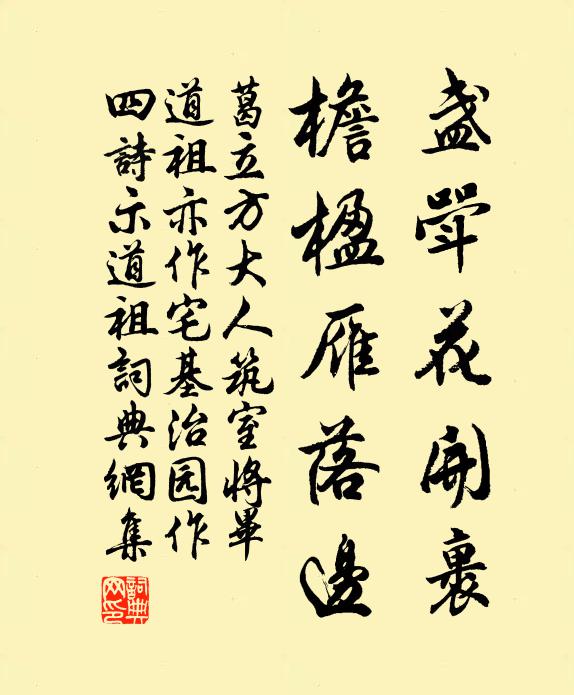 盞斝花開裏
檐楹雁落邊
葛立方大人筑室將畢
道祖亦作宅基治园作
四詩示道祖詞典網集
詞典
网印